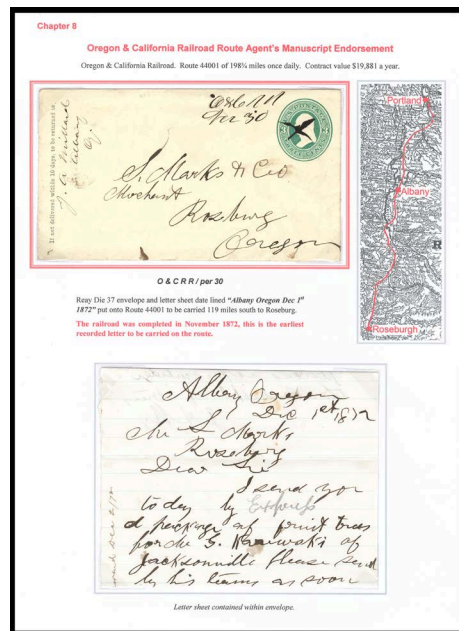 Chapter 8
Oregon & California Railroad Route Agent's Manuscript Endorsement
Oregon & California Railroad. Route 44001 of 198¼ miles once daily. Contract value $19,881 a year.
If not delivered within 10 days, to be returned to
Albany
S. Marks & Co
Merchant
Roseburg
Oregon
Portland
Albany
Roseburgh
O & C R R / per 30
Reay Die 37 envelope and letter sheet date lined "Albany Oregon Dec 1st
1872" put onto Route 44001 to be carried 119 miles south to Roseburg.
The railroad was completed in November 1872, this is the earliest
recorded letter to be carried on the route.
Albany Oregon
Dec 1st 1872
Mr S Marks
Roseburg
Dear Sir
I send you
to day by Express
a package of fruit trees
for Mr G. of
Jacksonville Please send
by his teams as soon
Letter sheet contained within envelope.